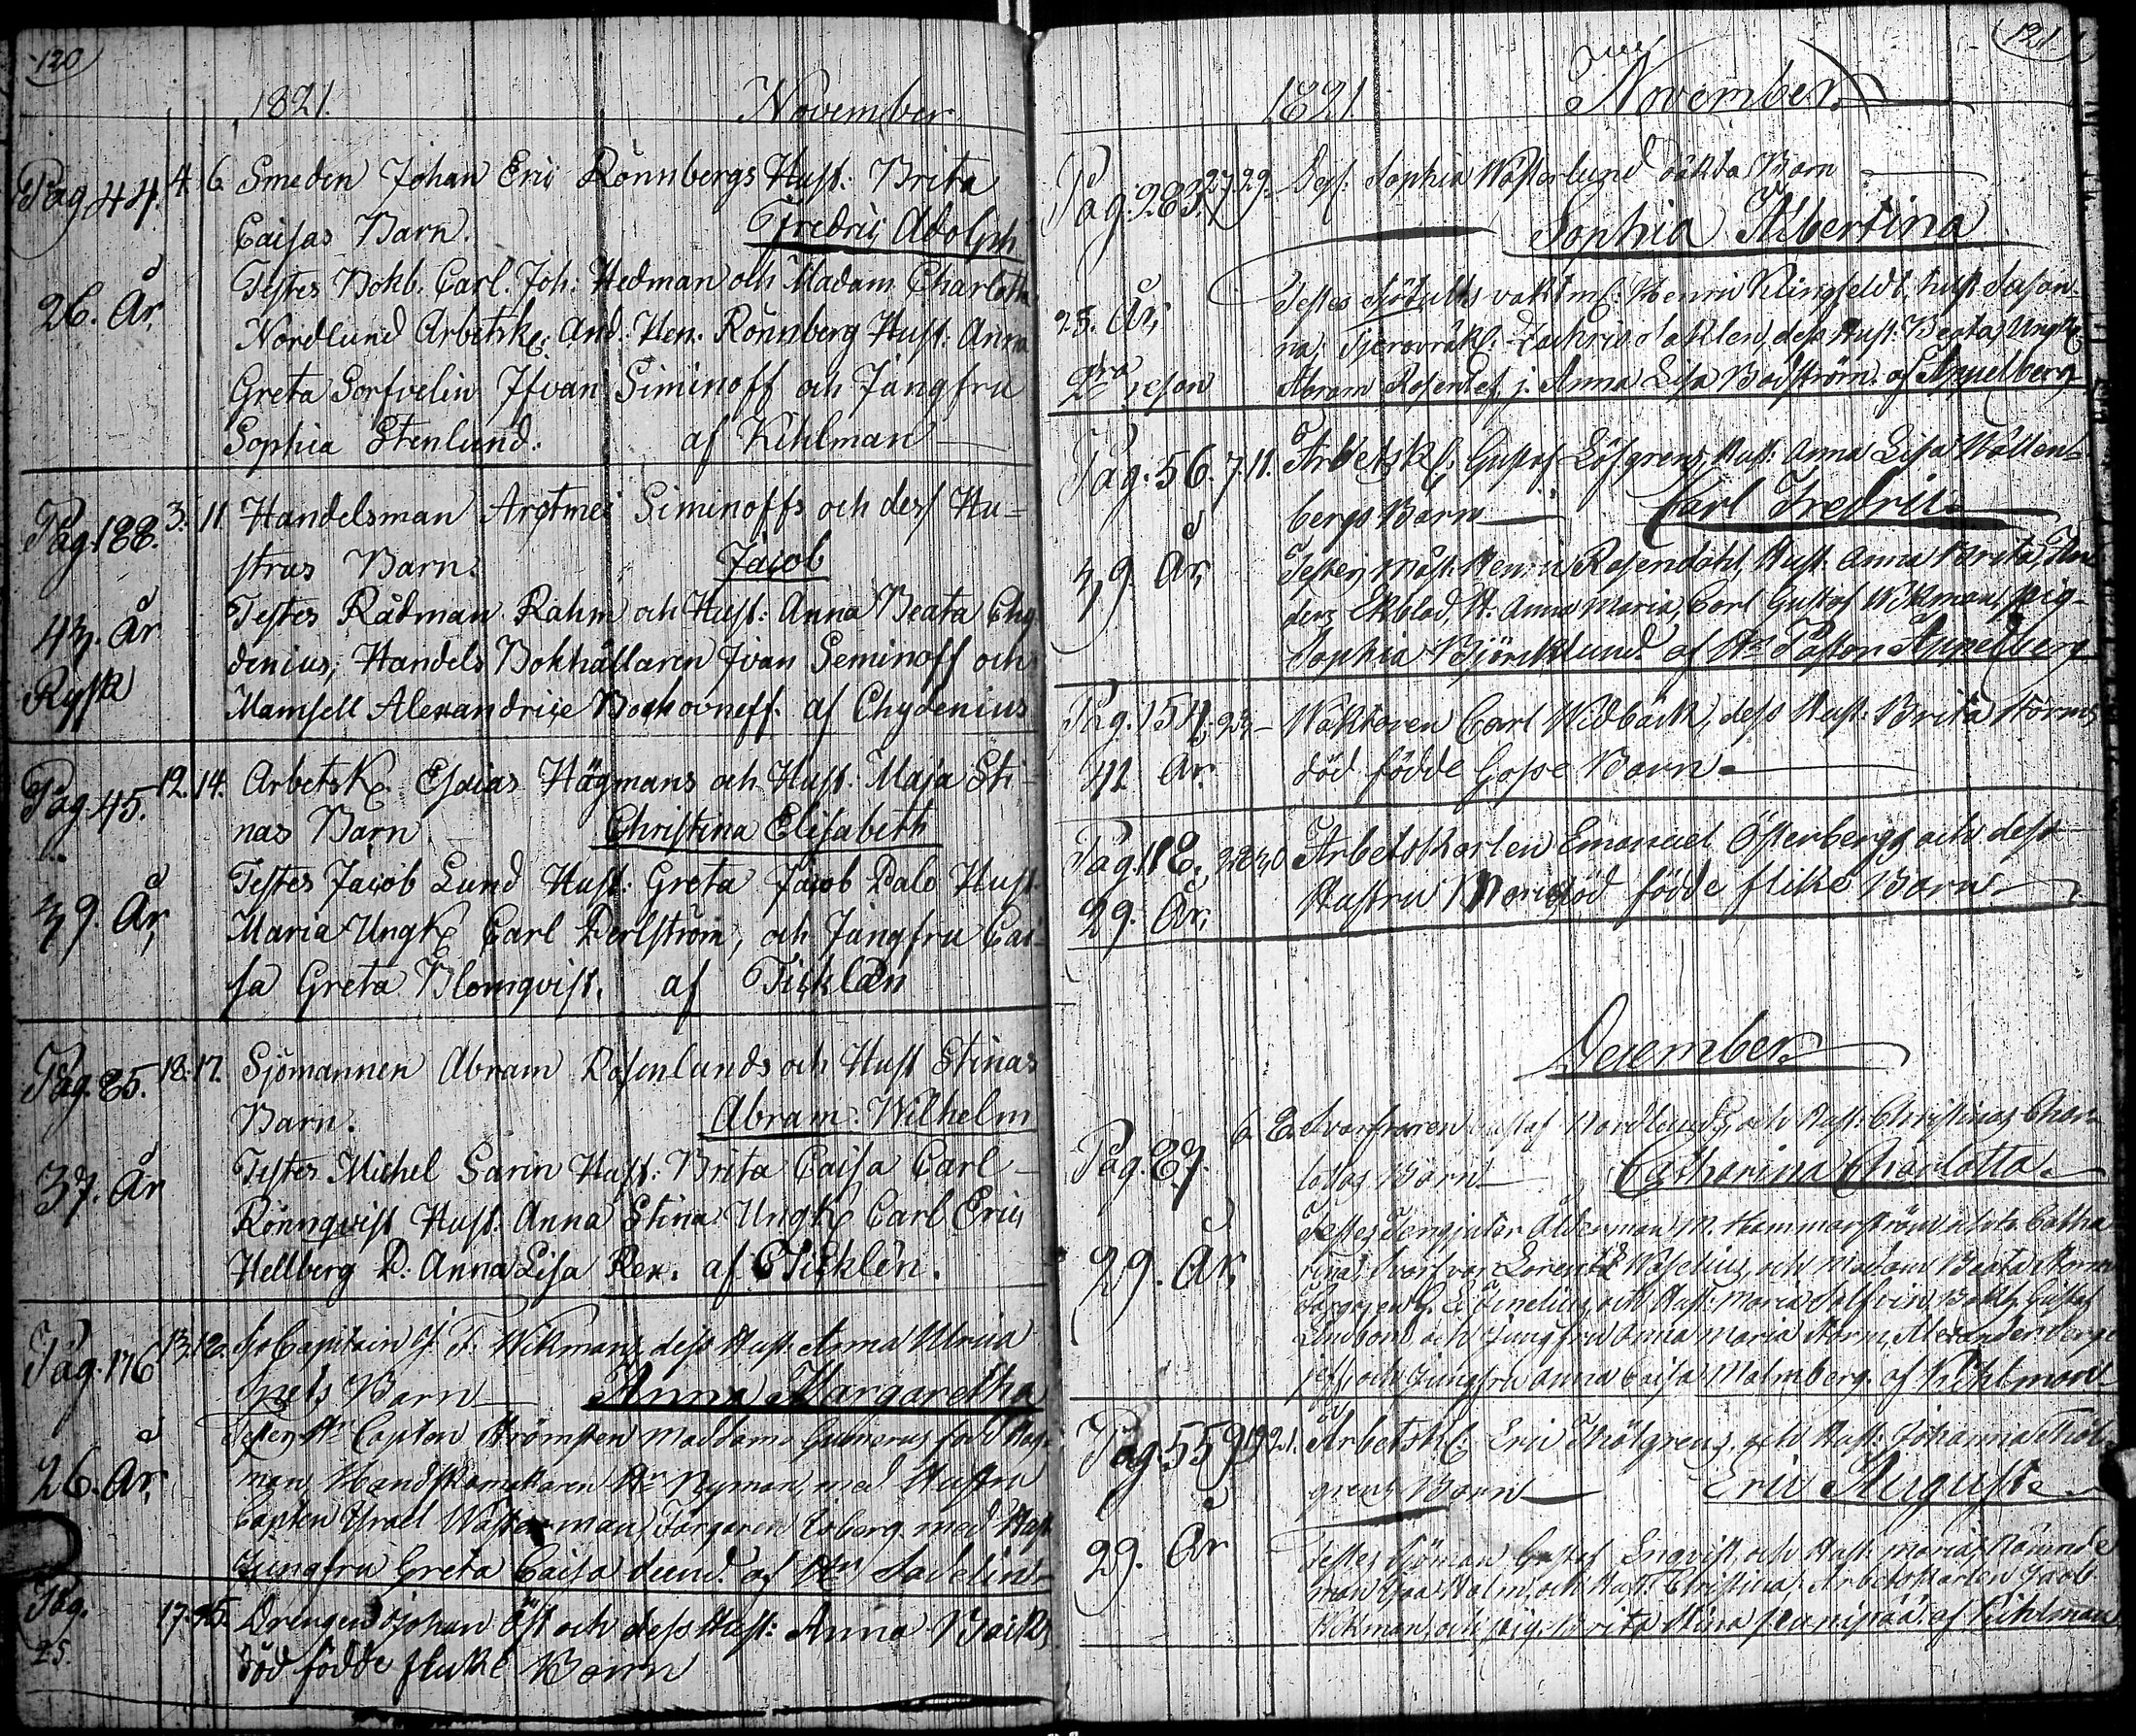 120
1821. November
Pag 44. 4. 6. Smeden Johan Eric Rönnbergs Hust: Brita
Caisas Barn. Fredric Adolph
26. År, Testes Bokh. Carl. Joh: Hedman och Madam Charlotta
Nordlund Arbetsk. And. Hen: Rönnberg Hust: Anna
Greta Sorfvelin Ifvan Siminoff och Jungfru
Sophia Stenlund. af Kihlman
Pag. 188. 3. 11. Handelsman Artmei Siminoffs och dess Hu-
strus Barn. Jacob
43. År Testes Rådman Rahm och Hust: Anna Beata Chy-
denius, Handels Bokhållaren Ivan Seminoff och
Rysk Mamsell Alexandrie Bochovneff. af Chydenius
Pag. 45. 12. 14. Arbetsk. Esaias Hägmans och Hust: Maja Sti-
nas Barn. Christina Elisabeth
39. År, Testes Jacob Lund Hust: Greta Jacob Dalo Hust
Maria Ungk Carl Derlström, och Jungfru Cai-
sa Greta Blomqvist. af Ticklén
Pag. 85. 18. 17. Sjömannen Abram Rosenlunds och Hust Stinas
Barn. Abram Wilhelm
37. År Testes Michel Sarin Hust: Brita Caisa Carl
Rönnqvist Hust: Anna Stina Ungk Carl Eric
Hellberg D. Anna Lisa Rex. af Ticklén.
Pag. 176 13. 18. Sjö Capitain J. F. Wikmans, dess Hust. Anna Ulrica
Barn Anna Margaretha
26. År, Testes Hr Capten Strömsten Maddame Gummerus född Hag-
man, Handskomakaren Hr Nyman, med Hustru
Capten Israel Wasterman, Färgaren Isberg med Hust
Jungfru Greta Caisa af Hr Sadelin
Pag. 25. 17. Drengen Johan Öst och dess Hust: Anna
död födde flicke Barn
121
1821 November
Pag. 283. 27. 29. Sophia Wästerlund oäkta Barn
Sophia Albertina
28. År, Testes Sjötulls vaktm: Henric Klingfeldt, hust Susan-
na, Zachris dess Hust: Beata, Ungk
2dra resan Abram j. Anna Lisa Bodström. af Appelberg
Pag. 56. 7. 11. Arbetsk: Gustaf Löfgrens, Hust: Anna Lisa Wallen-
bergs Barn Carl Fredric
39. År, Testes Måst. Henric Rosendahl, Hust: Anna Brita,
ders Ekblad, H: Anna Maria, Carl Gustaf Wikman, pig
Sophia Björklund. af Hr Pastor Appelberg
Pag. 154. 23 Wäktaren Carl Widbäck, dess Hust: Brita Storms
42 År. död födde Gosse Barn
Pag. 118. 28. 30 Arbetskarlen Emanuel Österbergs och dess
29. År. Hustru Maria död födde flike Barn
December
Pag. 87. 6. 8. Svarfvaren Gustaf Nordlunds, och Hust: Christinas Char-
lottas Barn Catharina Charlotta
29. År, Testes Tengjuter Ålderman M. Hammarström Catha-
rina, Svarfvar Lorentz Wiselius, och Madam Beata
Färgaren G. L. Finelius, och Hust: Maria Solfvin, Bokh: Gustaf
Lindbom och Jungfru Anna Maria Storm, Alexander Serge-
jeff, och Jungfru Anna Caisa Malmberg. af Kihlman
Pag. 559 19. 21. Arbetsk: Eric Thölgrens, och Hust: Johanna Thöl-
grens Barn Eric August
29. År Testes Sjöman Gustaf Enqvist, och Hust: Maria,
man Isaac Holm, och Hust: Christina. Arbetskarlen Jacob
Wikman, och pig. Brita Stina af Kihlman